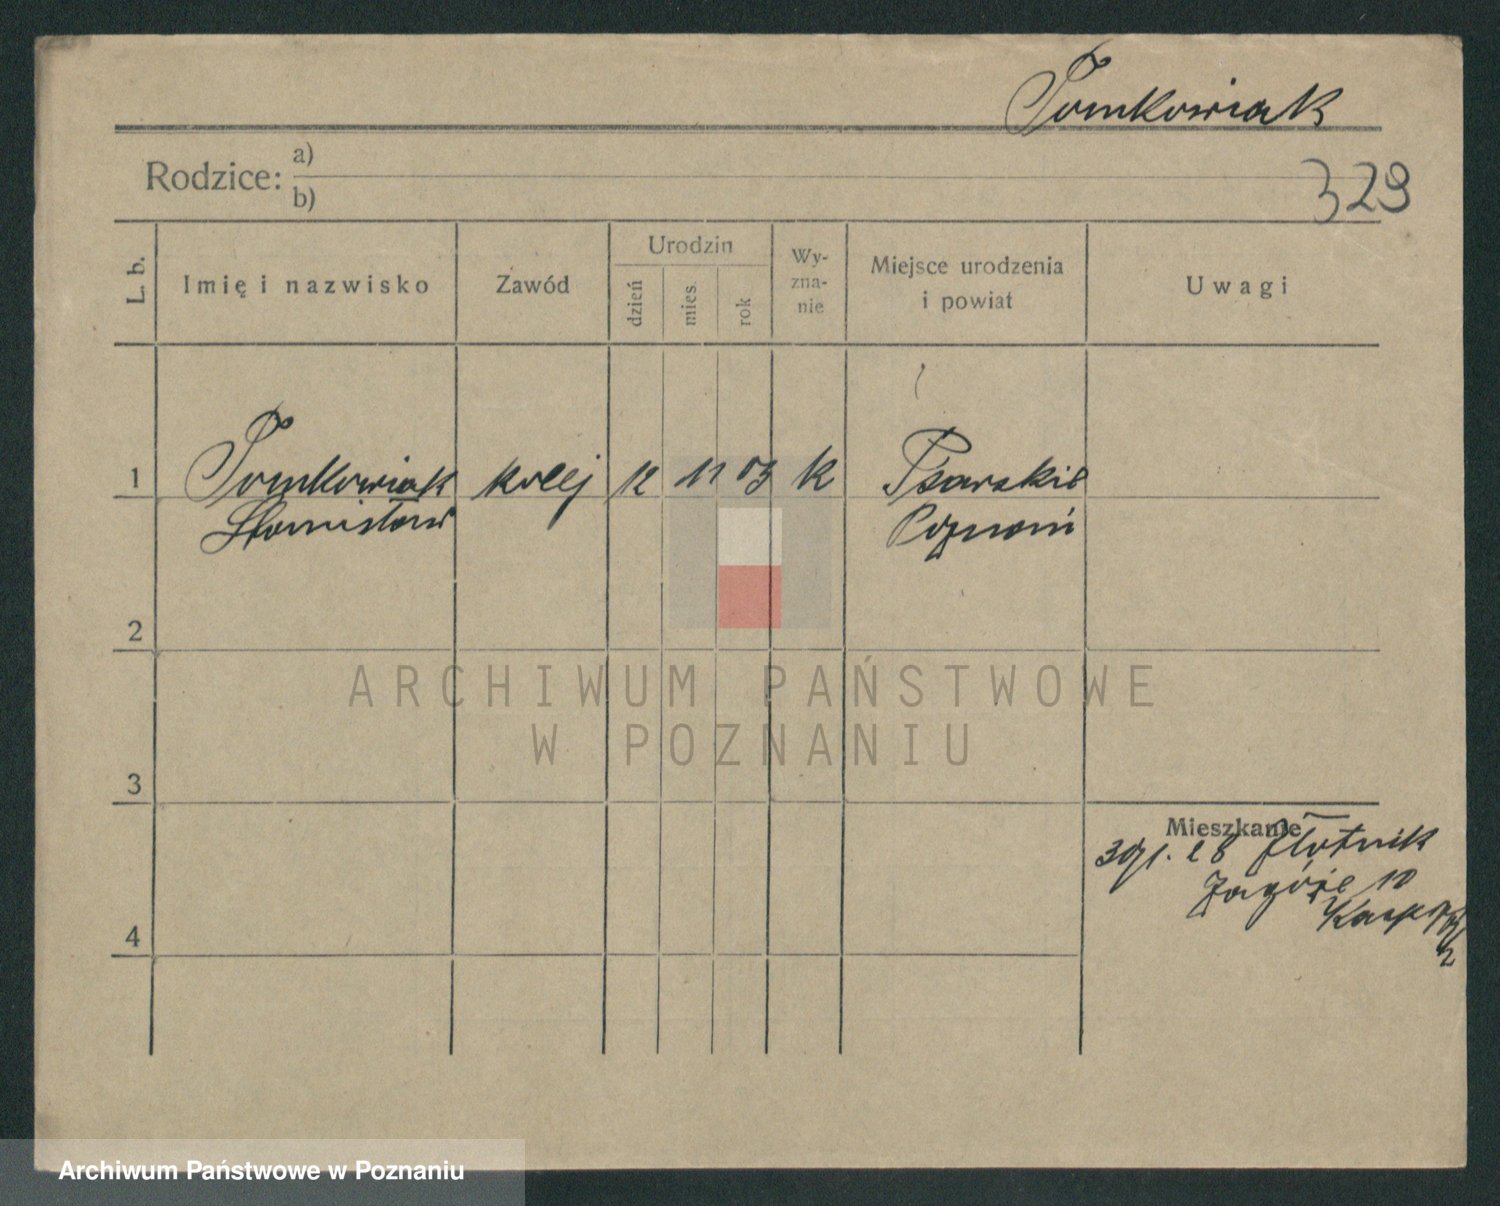 Tomkowiak
Rodzice: a)
b)
329
L. b.
Imię i nazwisko
Zawód
Urodzin
dzień
mies.
rok
Wy-
zna-
nie
Miejsce urodzenia
i powiat
Uwagi
1 Tomkowiak kolej 12 11 03 k Psarskie
Stanisław Poznań
2
ARCHIWUM PAŃSTWOWE
W POZNANIU
3
Mieszkanie
28 Złotnik
Zagórze 10
4
2
Archiwum Państwowe w Poznaniu